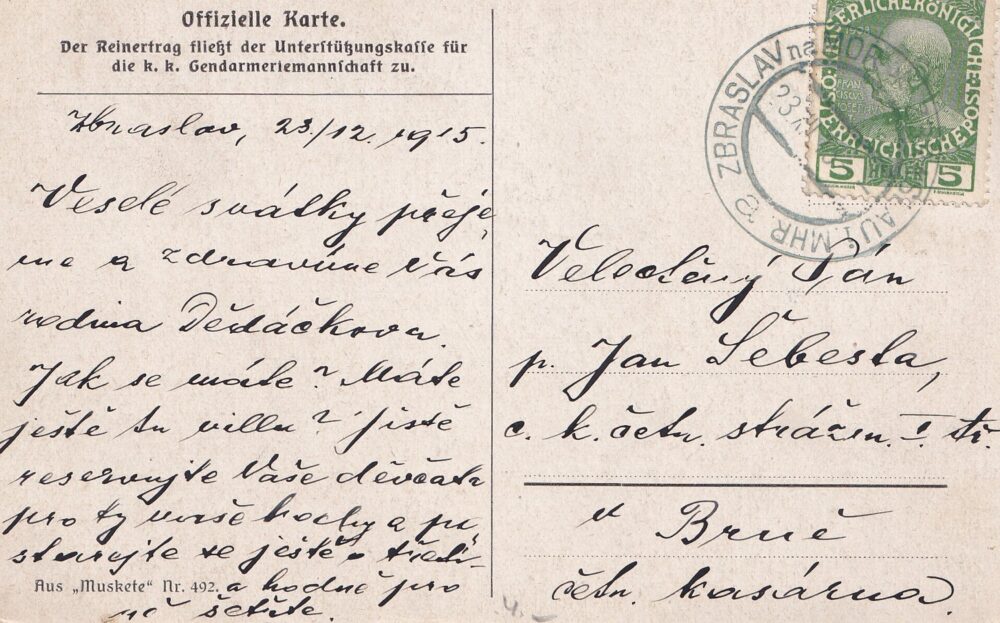 Offizielle Karte.
Der Reinertrag fließt der Unterstützungskasse für
die k. k. Gendarmeriemannschaft zu.
Zbraslav, 23/12. 1915.
Veselé svátky přeje-
me a zdravíme Vás
rodina Dědáčkova.
Jak se máte? Máte
ještě tu villu? Jistě
reservujte Vaše děvčata
pro ty naše hochy a po
starejte se ještě o třetí-
a hodně pro
ně šetřte.
Aus „Muskete" Nr. 492.
ZBRASLAV na MOR
MHR.
23
ÖSTERREICHISCHE POST
5 HELLER 5
Velectěný Pán
p. Jan Šebesta,
c. k. četn. strážm. I tř.
v Brně
četn. kasárna.
4.-